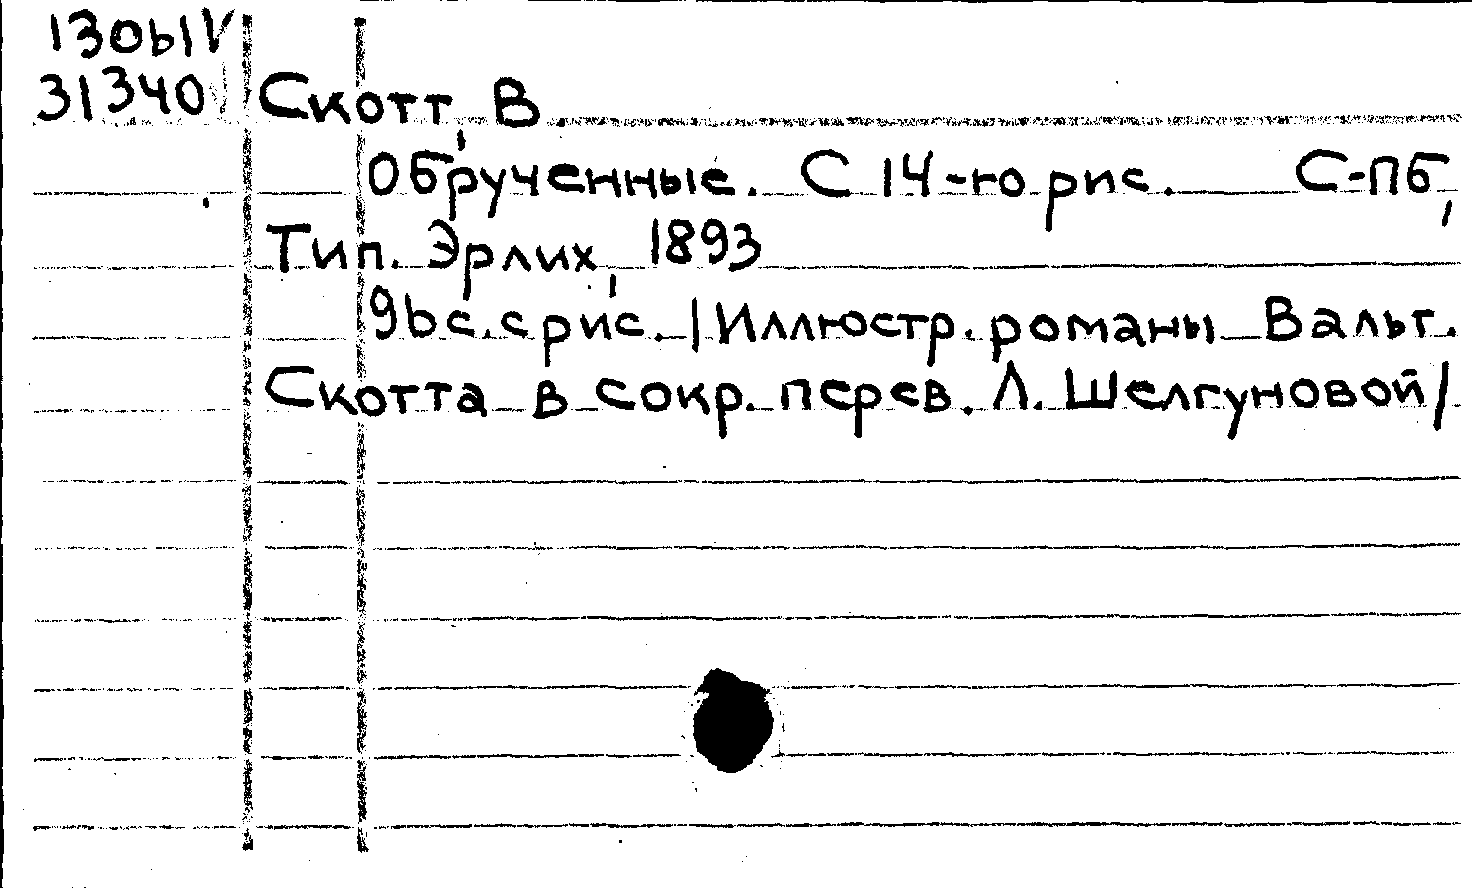 130b1V
31340 Скотт, В.
Обрученные. С 14-ю рис. С-Пб,
Тип. Эрлих, 1893
96 с. с рис. /Иллюстр. романы Вальт.
Скотта в сокр. перев. Л. Шелгуновой/